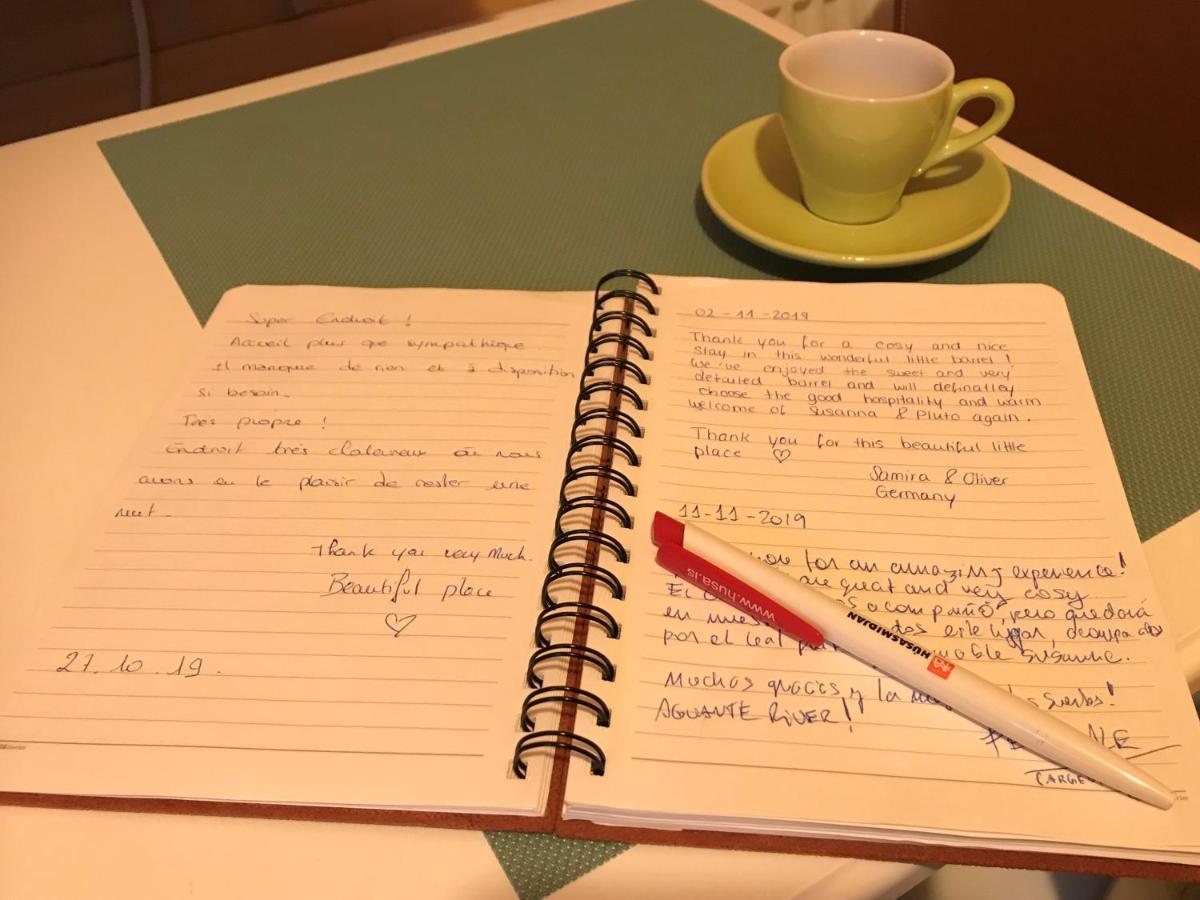 Super Endroit !
Accueil plus que sympathique
il manque de rien et à disposition
si besoin.
Très propre !
Endroit très chaleureux où nous
avons eu le plaisir de rester une
nuit.
Thank you very Much.
Beautiful place
♡
27.10.19.
02-11-2019
Thank you for a cosy and nice
stay in this wonderful little barrel !
We've enjoyed the sweet and very
detailed barrel and will definatley
choose the good hospitality and warm
welcome of Susanna & Pluto again.
Thank you for this beautiful little
place ♡
Samira & Oliver
Germany
11-11-2019
you for an amazing experience!
are great and very cosy
El acompañó, pero quedará
en este lugar,
por el leal amable Susanne.
Muchas gracias y la
AGUANTE RIVER!!
www.husa.is
HÚSASMIÐJAN